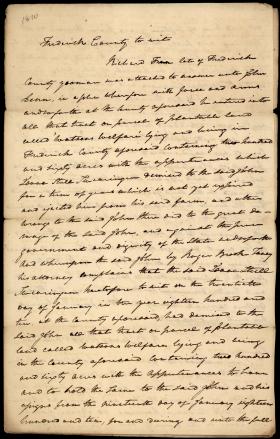 1810
Frederick County to wit
Richard Fenn late of Frederick
County yeoman was attached to answer unto John
Denn, in a plea wherefore with force and arms
and so forth at the County aforesaid he entered into
all that tract or parcel of plantable land
called Watsons Welfare lying and being in
Frederick County aforesaid containing two hundred
and sixty acres with the appurtenances which
Isaac Still Swearingen demised to the said John
for a term of years which is not yet expired
and ejected him from his said farm, and other
wrongs to the said John then did to the great da=
mage of the said John, and against the peace
government and dignity of the State and so forth
And whereupon the said John by Roger Brooke Taney
his attorney complains that the said Isaac Still
Swearingen heretofore to wit on the twentieth
day of January in the year eighteen hundred and
ten at the County aforesaid, had demised to the
said John all that tract or parcel of plantable
land called Watsons Welfare lying and being
in the County aforesaid containing two hundred
and sixty acres with the appurtenances to have
and to hold the same to the said John and his
assigns from the nineteenth day of January eighteen
hundred and ten, for and during and unto the full